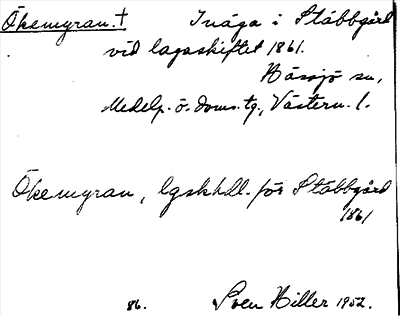 Ökemyran. † Inäga i Stäbbgård
vid lagaskiftet 1861.
Hässjö sn,
Medelp. ö. doms. tg., Västern. l.
Ökemyran, lgskhdl. för Stäbbgård
1861
86. Sven Hiller 1952.